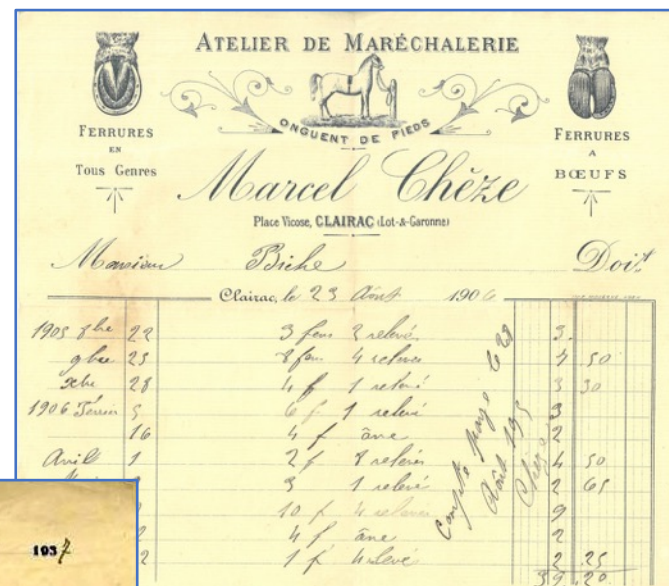 ATELIER DE MARÉCHALERIE
FERRURES
EN
Tous Genres
ONGUENT DE PIEDS
FERRURES
A
BŒUFS
Marcel Chèze
Place Vicose, CLAIRAC (Lot-&-Garonne)
Monsieur Biche Doit
Clairac, le 23 Août 1906
1905 8bre 22 3 fers 2 relevé 3.
9bre 25 8 fers 4 relevés 7 50
xbre 28 4 f 1 relevé 3 30
1906 5 6 f 1 relevé 3
16 4 f âne 2
Avril 1 2 f 8 relevés 4 50
3 1 relevé 2 65
10 f 4 relevés 9
4 f âne 2
2 1 f 4 relevé 2 25
39,20
Compte payé le 28
Août 195
Chèze
1937